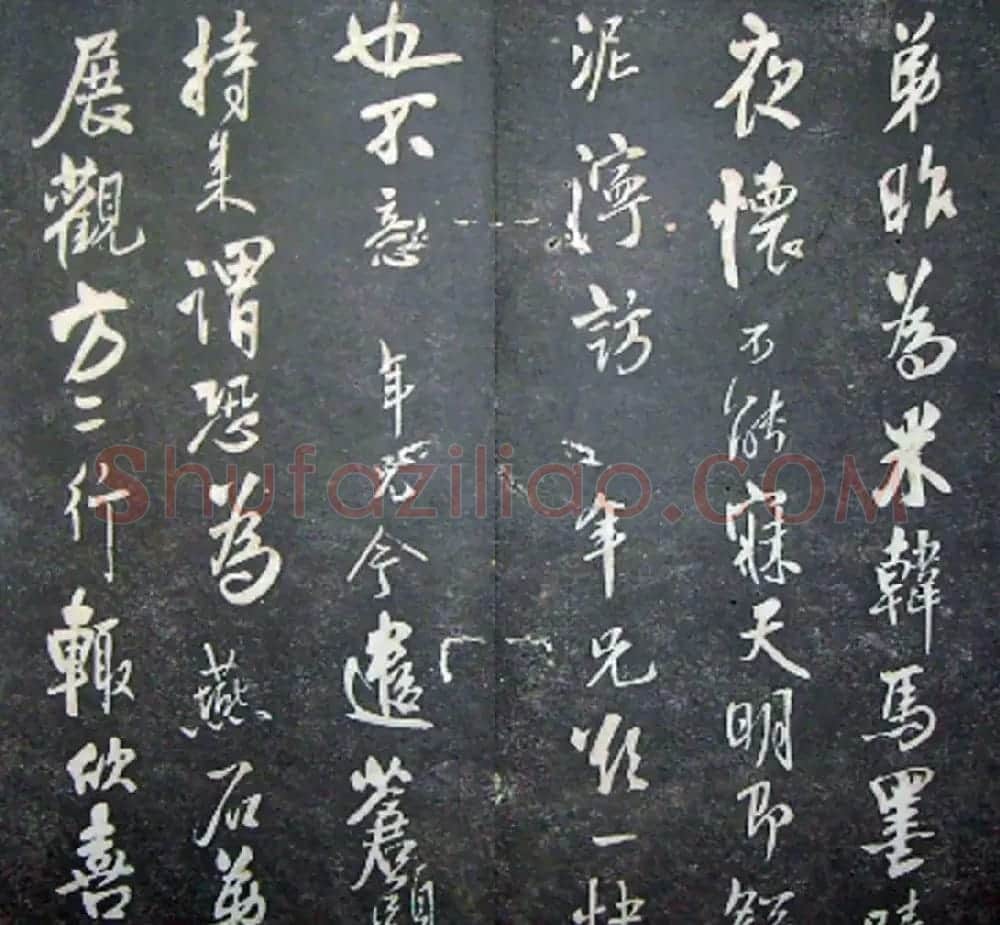 弟昨為米韓馬墨
夜懷不能寐天明即
泥濘訪年兄欲一快
也不意年兄今遣蒼頭
持來謂恐為燕石弟
展觀方二行輒欣喜
Shufaziliao.COM